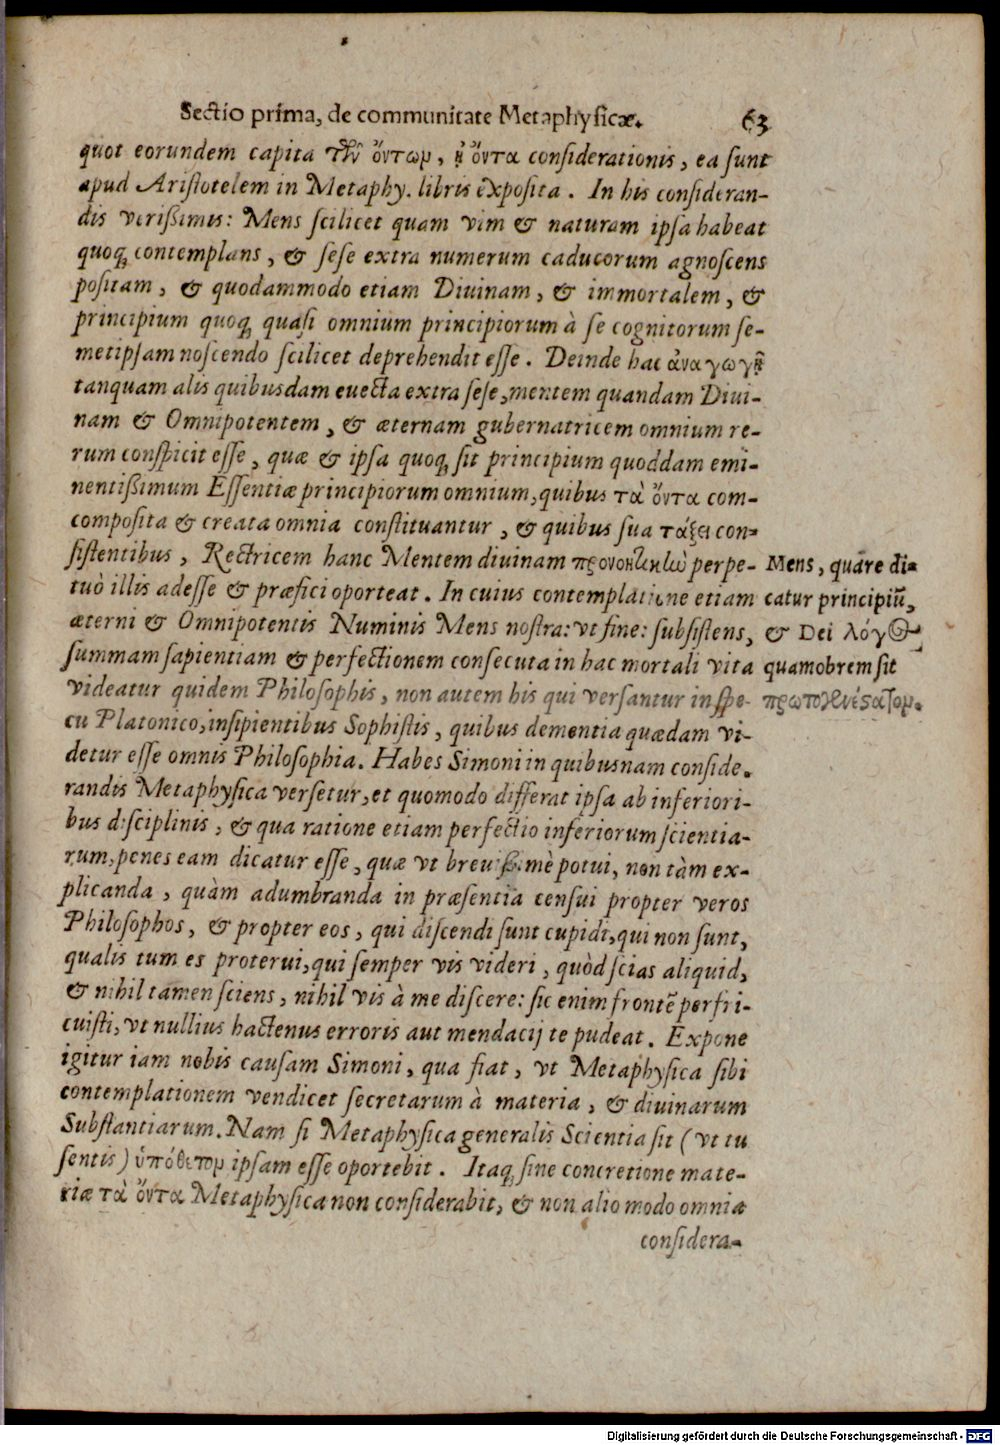 Sectio prima, de communitate Metaphysicæ. 63
quot eorundem capita τῶν ὄντων, ᾗ ὄντα considerationis, ea sunt
apud Aristotelem in Metaphy. libris exposita. In his consideran-
dis verißimis: Mens scilicet quam vim & naturam ipsa habeat
quoq; contemplans, & sese extra numerum caducorum agnoscens
positam, & quodammodo etiam Diuinam, & immortalem, &
principium quoq; quasi omnium principiorum à se cognitorum se-
metipsam noscendo scilicet deprehendit esse. Deinde hac ἀναγωγῇ
tanquam alis quibusdam euecta extra sese, mentem quandam Diui-
nam & Omnipotentem, & æternam gubernatricem omnium re-
rum conspicit esse, quæ & ipsa quoq; sit principium quoddam emi-
nentißimum Essentiæ principiorum omnium, quibus τὰ ὄντα com-
composita & creata omnia constituantur, & quibus sua τάξει con-
sistentibus, Rectricem hanc Mentem diuinam προνοητικὴν perpe-
tuò illis adesse & præfici oporteat. In cuius contemplatione etiam
æterni & Omnipotentis Numinis Mens nostra: vt fine: subsistens,
summam sapientiam & perfectionem consecuta in hac mortali vita
videatur quidem Philosophis, non autem his qui versantur in spe-
cu Platonico, insipientibus Sophistis, quibus dementia quædam vi-
detur esse omnis Philosophia. Habes Simoni in quibusnam conside-
randis Metaphysica versetur, et quomodo differat ipsa ab inferiori-
bus disciplinis, & qua ratione etiam perfectio inferiorum scientia-
rum, penes eam dicatur esse, quæ vt breuißimè potui, non tàm ex-
plicanda, quàm adumbranda in præsentia censui propter veros
Philosophos, & propter eos, qui discendi sunt cupidi, qui non sunt,
qualis tum es proterui, qui semper vis videri, quòd scias aliquid,
& nihil tamen sciens, nihil vis à me discere: sic enim frontē perfri-
cuisti, vt nullius hactenus erroris aut mendacij te pudeat. Expone
igitur iam nobis causam Simoni, qua fiat, vt Metaphysica sibi
contemplationem vendicet secretarum à materia, & diuinarum
Substantiarum. Nam si Metaphysica generalis Scientia sit (vt tu
sentis) ὑπόθετον ipsam esse oportebit. Itaq; sine concretione mate-
riæ τὰ ὄντα Metaphysica non considerabit, & non alio modo omnia
considera-
Mens, quare di-
catur principiū,
& Dei λόγος,
quamobrem sit
Digitalisierung gefördert durch die Deutsche Forschungsgemeinschaft - DFG